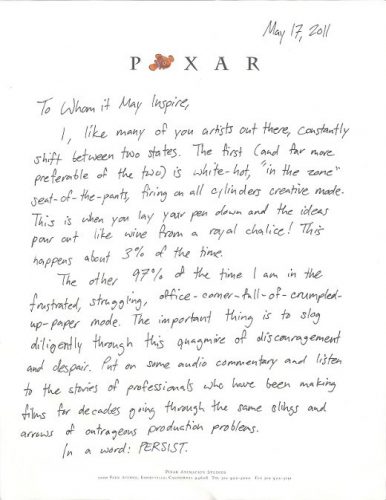 May 17, 2011
P XAR
To Whom it May Inspire,
I, like many of you artists out there, constantly
shift between two states. The first (and far more
preferable of the two) is white-hot, "in the zone"
seat-of-the-pants, firing on all cylinders creative mode.
This is when you lay your pen down and the ideas
pour out like wine from a royal chalice! This
happens about 3% of the time.
The other 97% of the time I am in the
frustrated, struggling, office-corner-full-of-crumpled-
up-paper mode. The important thing is to slog
diligently through this quagmire of discouragement
and despair. Put on some audio commentary and listen
to the stories of professionals who have been making
films for decades going through the same slings and
arrows of outrageous production problems.
In a word: PERSIST.
PIXAR ANIMATION STUDIOS